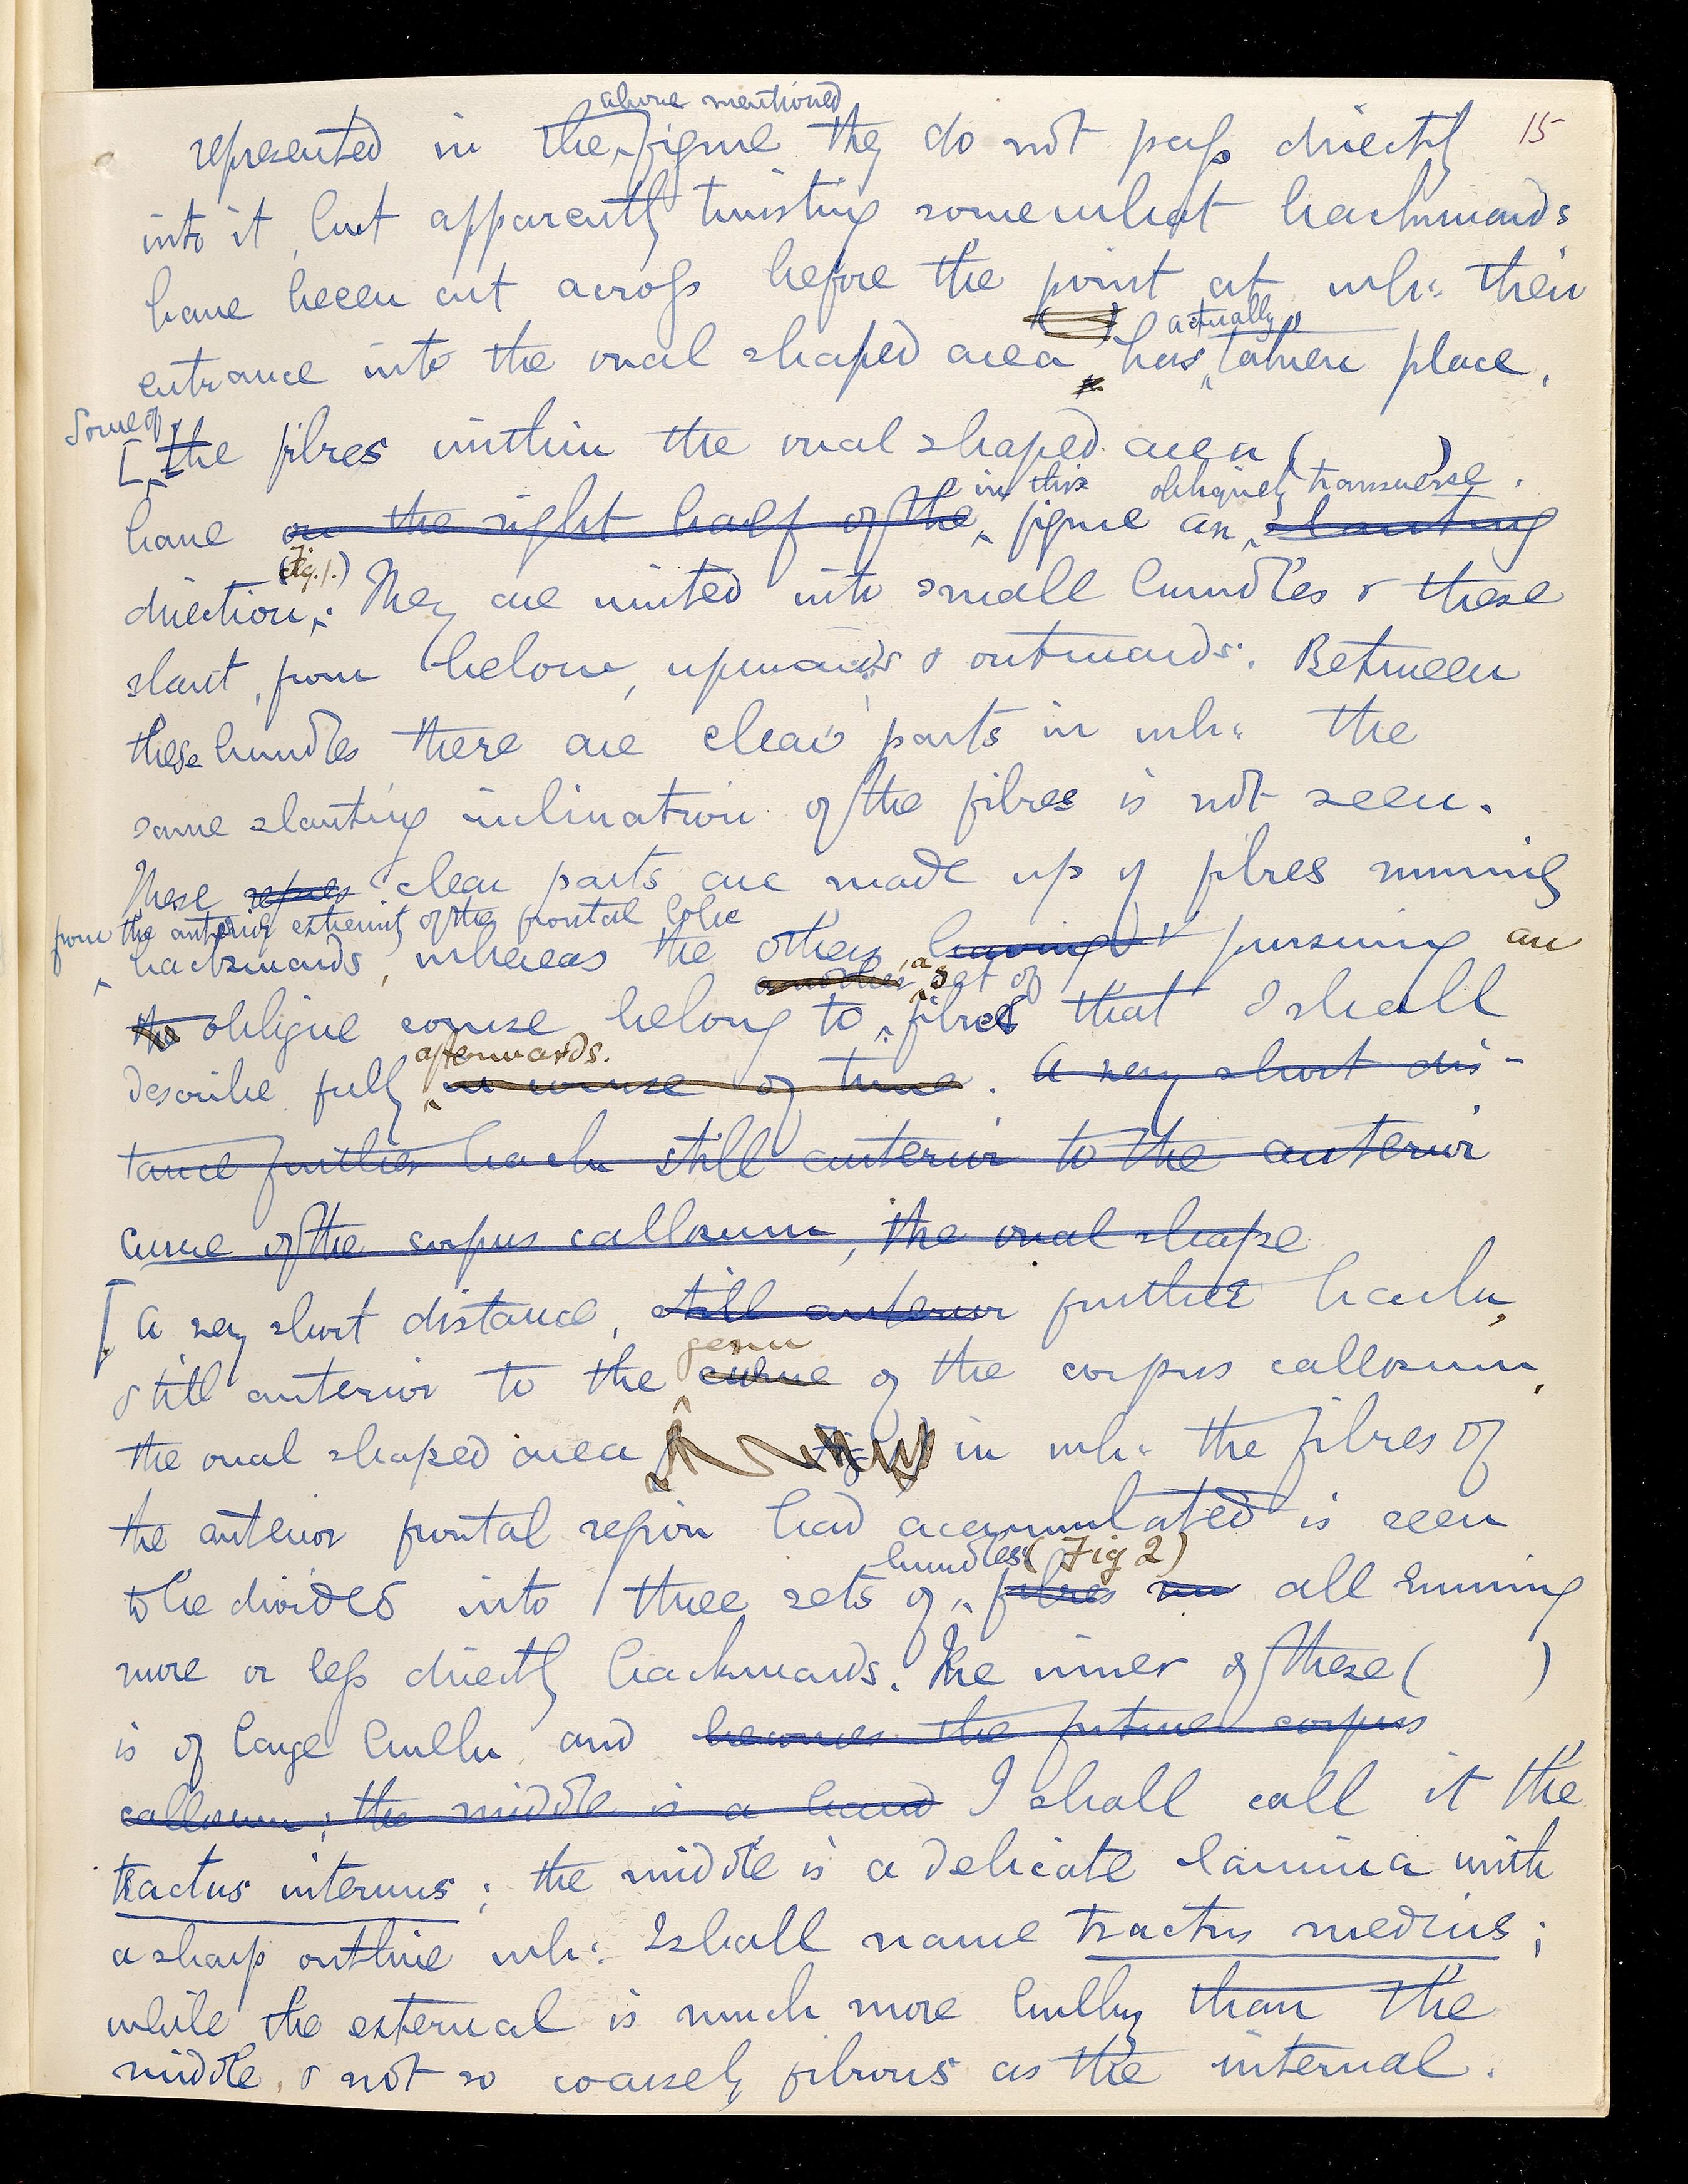 15
above mentioned
represented in the figure they do not pass directly
into it, but apparently twisting somewhat backwards
have been cut across before the point at wh: their
actually
entrance into the oval shaped area has taken place.
Some of
[the fibres within the oval shaped area (        )
in this obliquely transverse.
have on the right half of the figure an slanting
(Fig. 1.)
direction: They are united into small bundles & these
slant, from below, upwards & outwards. Between
these bundles there are clear parts in wh: the
same slanting inclination of the fibres is not seen.
These clear parts are made up of fibres running
from the anterior extremity of the frontal lobe
backwards, whereas the others, having & pursuing an
another, a set of
the oblique course belong to fibres that I shall
afterwards.
describe fully in course of time. A very short dis-
tance further back still anterior to the anterior
curve of the corpus callosum, the oval shape
[A very short distance, still anterior further back,
genu
still anterior to the curve of the corpus callosum,
the oval shaped area in wh: the fibres of
the anterior frontal region had accumulated is seen
bundles (Fig 2)
to be divided into three sets of fibres run all running
more or less directly backwards. The inner of these (        )
is of large bulk, and becomes the future corpus
callosum; the middle is a band I shall call it the
tractus internus; the middle is a delicate lamina with
a sharp outline wh: I shall name tractus medius;
while the external is much more bulky than the
middle, & not so coarsely fibrous as the internal.